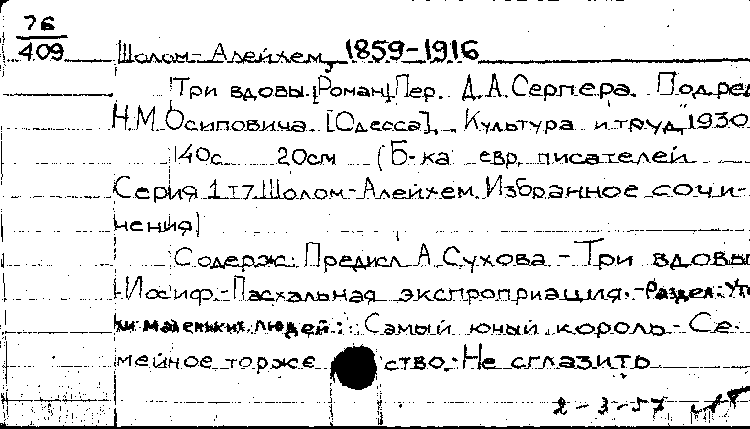 76
409
Шолом-Алейхем, 1859-1916
Три вдовы. [Роман] Пер. Д.А. Серпера. Под ред
Н.М. Осиповича. [Одесса], "Культура и труд" 1930
140с 20см (Б-ка евр. писателей
Серия 1 т7 Шолом-Алейхем. Избранное сочи-
нения)
Содерж: Предисл А. Сухова - Три вдовы
-Иосиф.-Пасхальная экспроприация.-Раздел: Уте
хи маленьких людей: Самый юный король - Се-
мейное торже ство.-Не сглазить
2-3-57